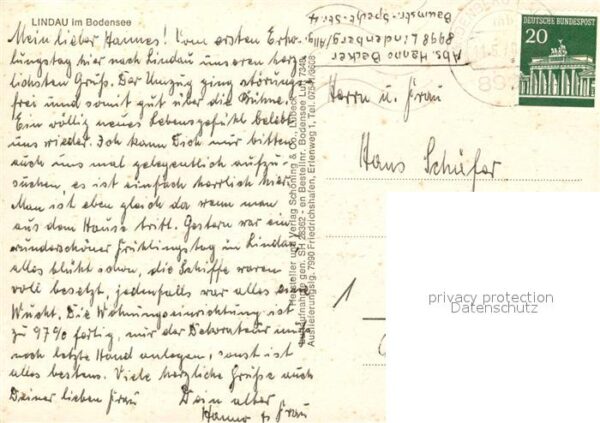 LINDAU im Bodensee
Mein lieber Hannes! Vom ersten Erho-
lungstag hier nach Lindau unseren herz-
lichsten Gruß. Der Umzug ging störungs-
frei und somit gut über die Bühne.
Ein völlig neues Lebensgefühl belebt
uns wieder. Ich kann Dich nur bitten
auch uns mal gelegentlich aufzu-
suchen, es ist einfach herrlich hier.
Man ist eben gleich da wenn man
aus dem Hause tritt. Gestern war ein
wunderschöner Frühlingstag in Lindau,
alles blüht schon, die Schiffe waren
voll besetzt, jedenfalls war alles eine
Wucht. Die Wohnungseinrichtung ist
zu 97% fertig, nur der Dekorateur muß
noch letzte Hand anlegen, sonst ist
alles bestens. Viele herzliche Grüße auch
Deiner lieben Frau Dein alter
Hanno u Frau
Hersteller und Verlag Schöning & Co., Lübeck
Luftaufnahme gen. SH 28362 - en Bestellnr. Bodensee Lu 7349
Auslieferungslg. 7990 Friedrichshafen, Erlenweg 1, Tel.
Abs. Hanno Becker
8998 Lindenberg/Allg
Baumstr.-Specht-Str. 4
DEUTSCHE BUNDESPOST
20
Herrn u. Frau
Hans Schäfer
1
privacy protection
Datenschutz